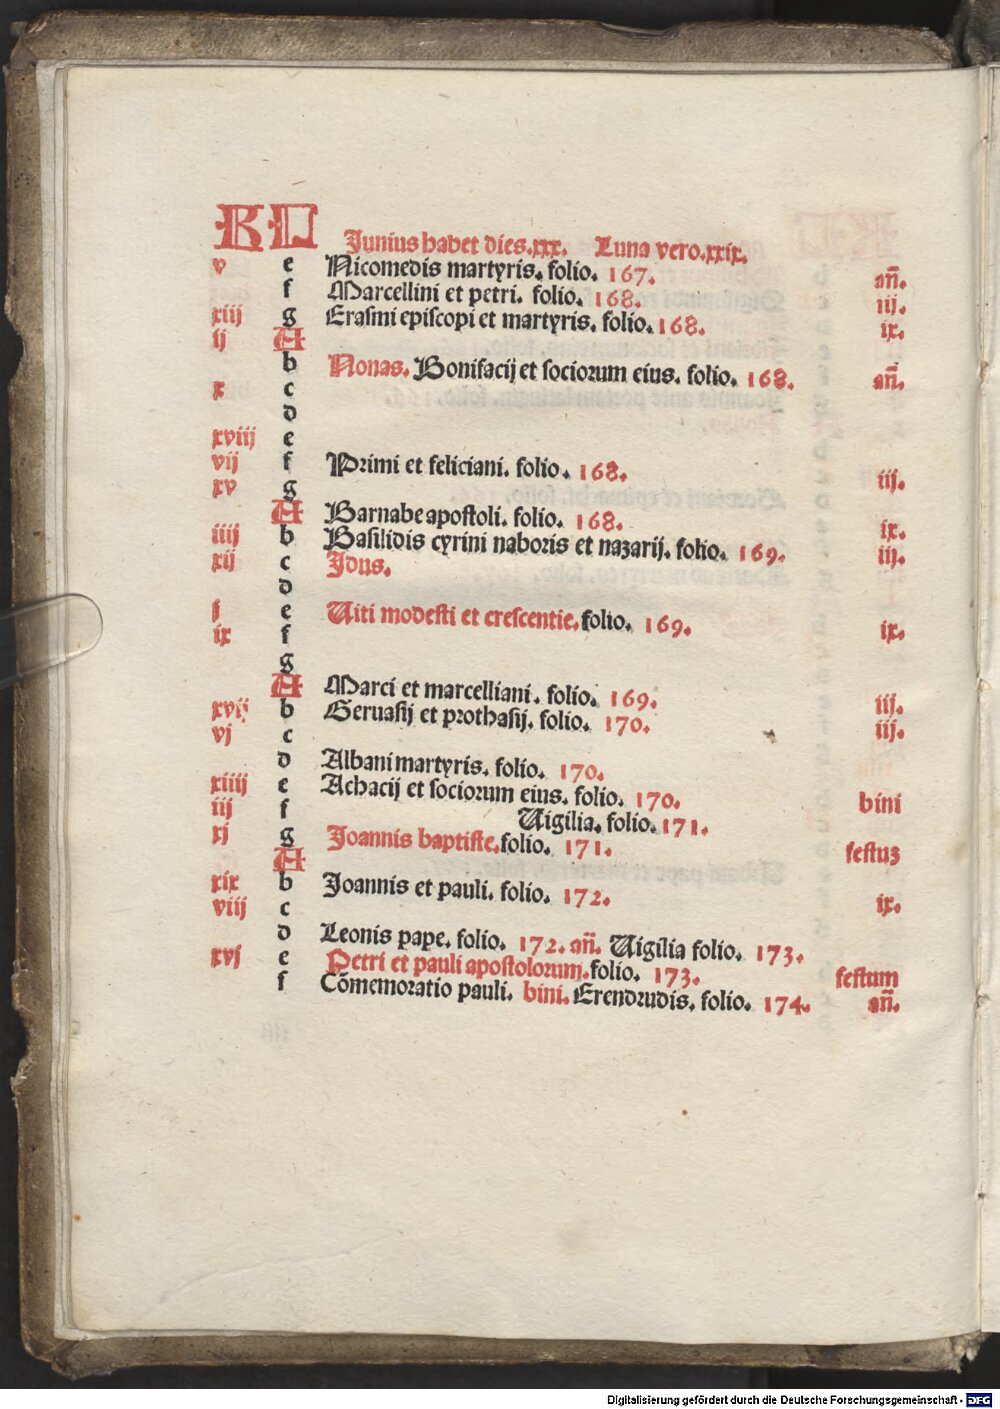 KL Junius habet dies.xxx. Luna vero.xxix.
v e Nicomedis martyris. folio. 167. añ.
f Marcellini et petri. folio. 168. iij.
xiij g Erasmi episcopi et martyris. folio. 168. ix.
ij A
b Nonas. Bonifacij et sociorum eius. folio. 168. añ.
x c
d
xviij e
vij f Primi et feliciani. folio. 168. iij.
xv g
A Barnabe apostoli. folio. 168. ix.
iiij b Basilidis cyrini naboris et nazarij. folio. 169. iij.
xij c Idus.
d
j e Uiti modesti et crescentie. folio. 169. ix.
ix f
g
A Marci et marcelliani. folio. 169. iij.
xvij b Geruasij et prothasij. folio. 170. iij.
vj c
d Albani martyris. folio. 170.
xiiij e Achacij et sociorum eius. folio. 170. bini
iij f Uigilia. folio. 171.
xj g Joannis baptiste. folio. 171. festuz
A
xix b Joannis et pauli. folio. 172. ix.
viij c
d Leonis pape. folio. 172. añ. Uigilia folio. 173.
xvj e Petri et pauli apostolorum. folio. 173. festum
f Cōmemoratio pauli. bini. Erendrudis. folio. 174. añ.
Digitalisierung gefördert durch die Deutsche Forschungsgemeinschaft - DFG